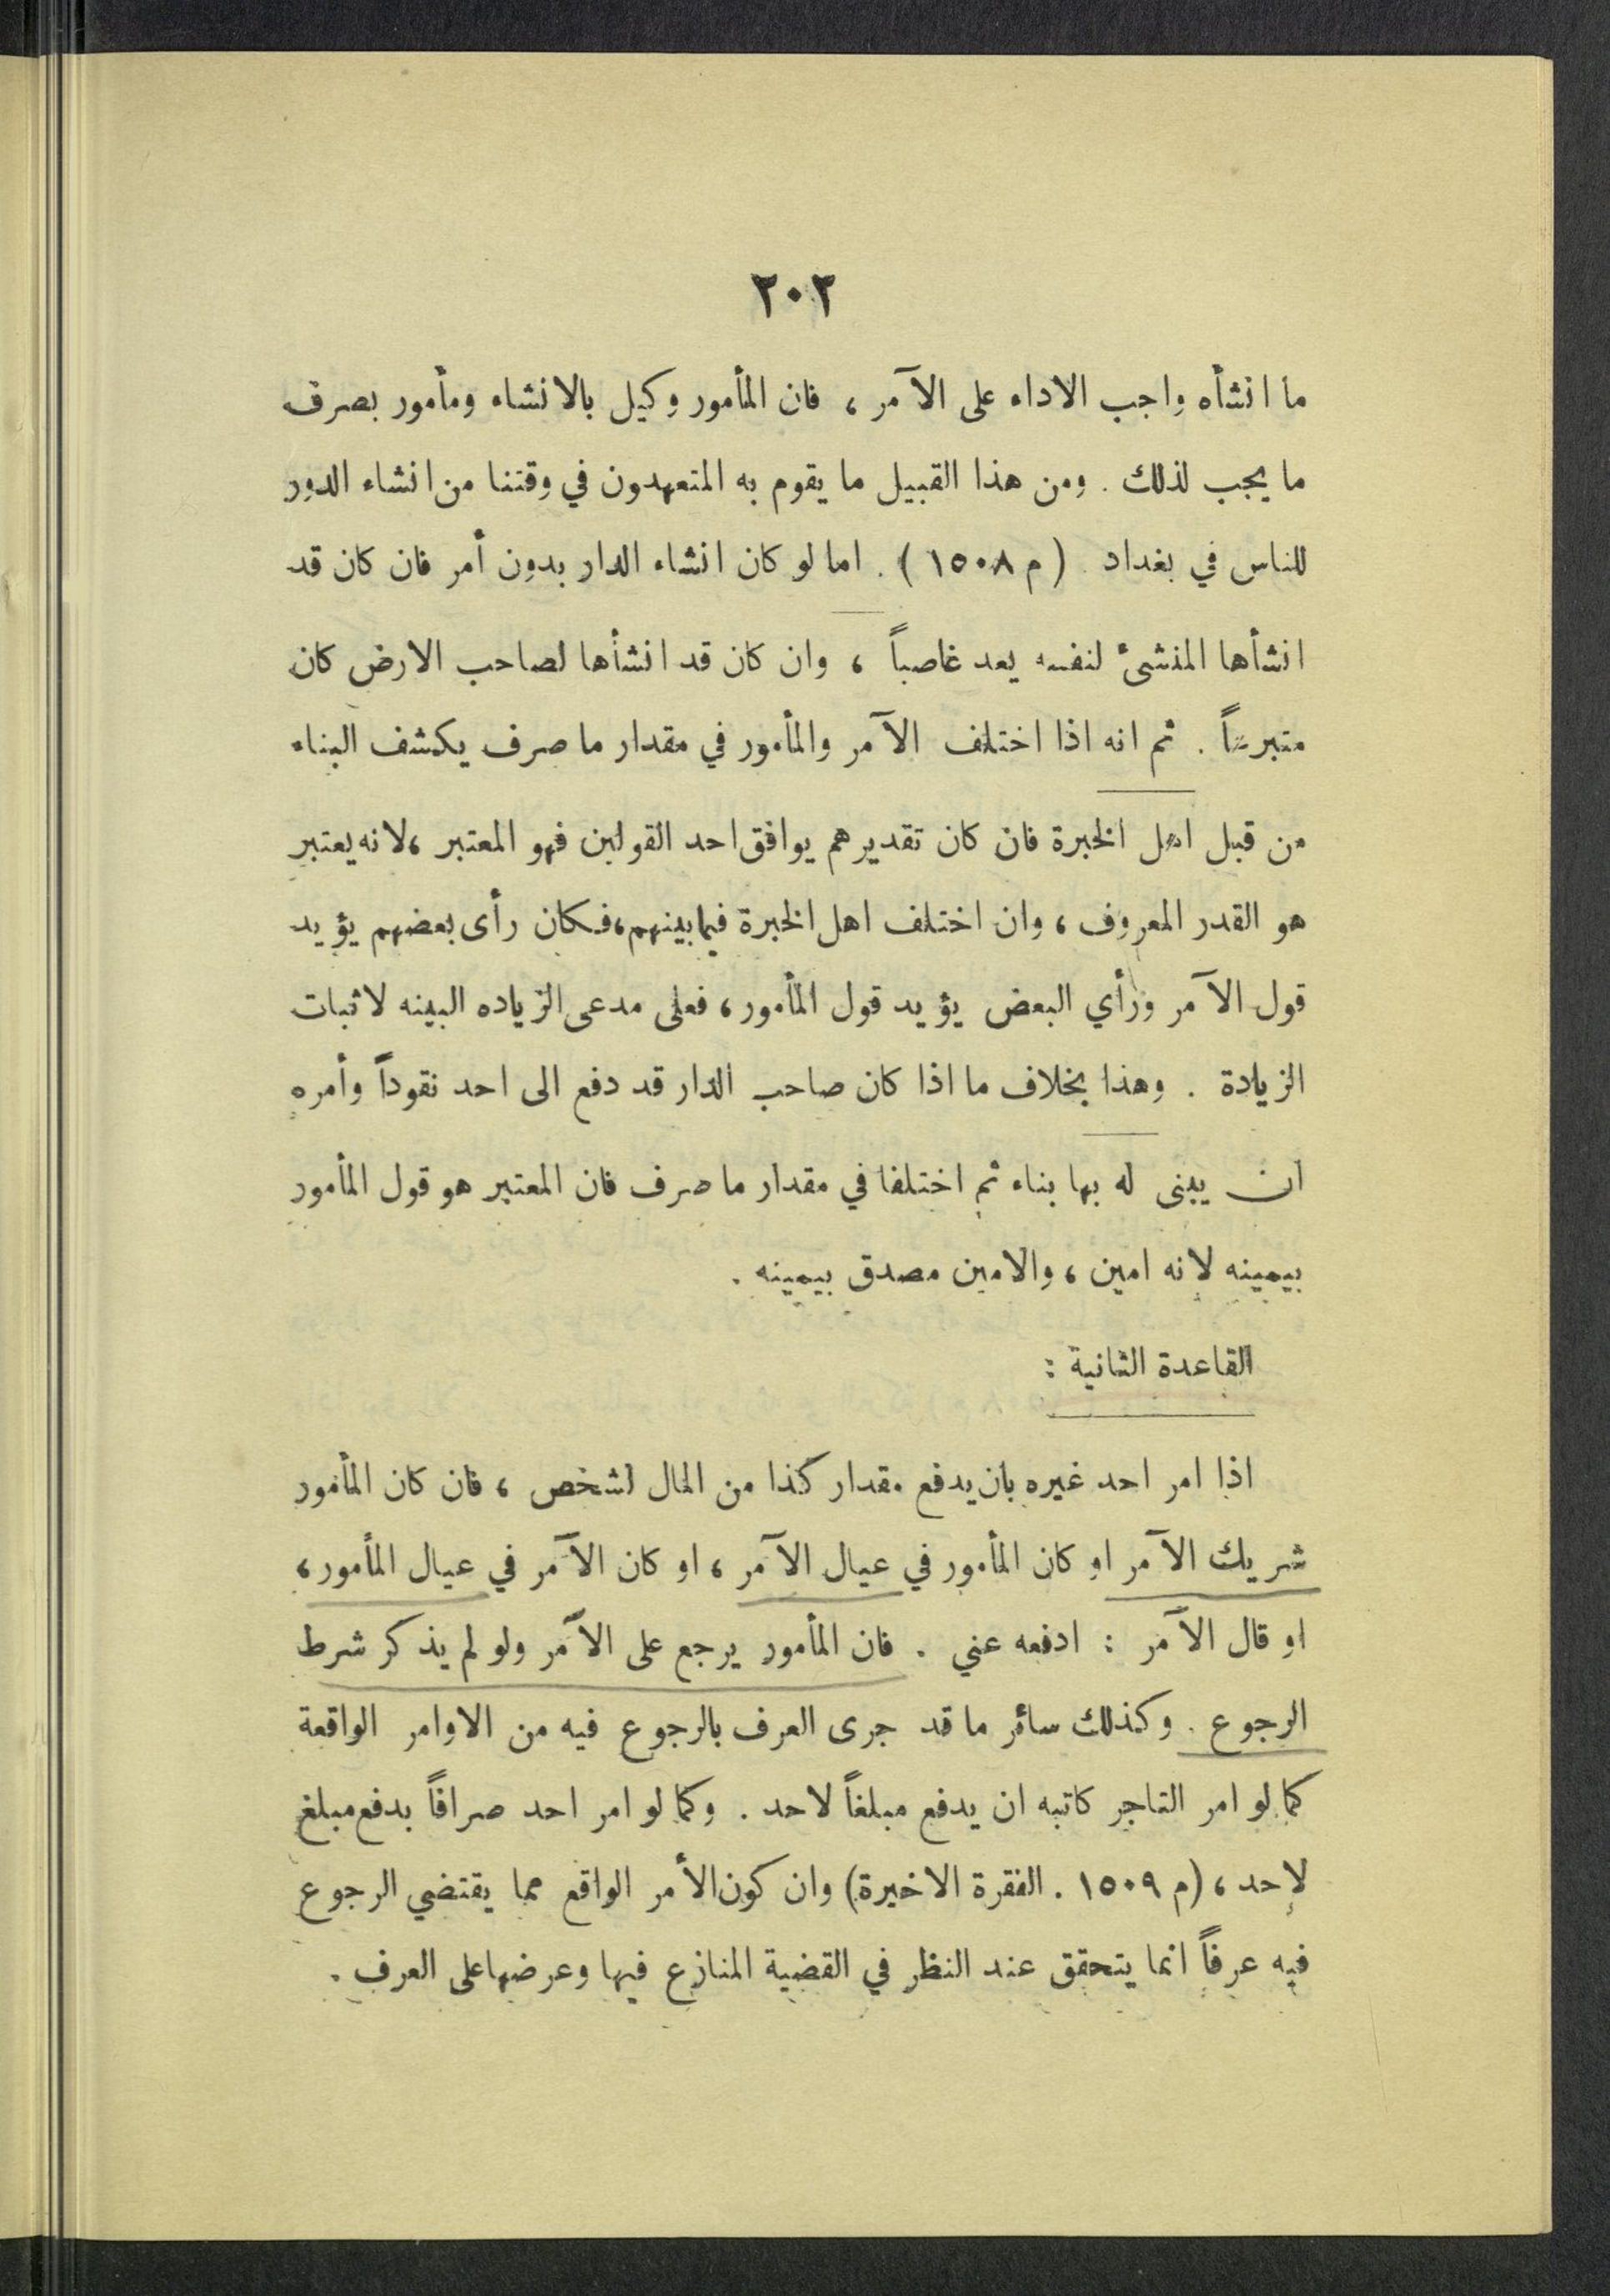 ٢٠٢
ما انشأه واجب الاداء على الآمر ، فان المأمور وكيل بالانشاء ومأمور بصرف
ما يجب لذلك . ومن هذا القبيل ما يقوم به المتعهدون في وقتنا من انشاء الدور
للناس في بغداد (م ١٥٠٨) . اما لو كان انشاء الدار بدون أمر فان كان قد
انشأها المنشئ لنفسه يعد غاصباً ، وان كان قد انشأها لصاحب الارض كان
متبرعاً . ثم انه اذا اختلف الآمر والمأمور في مقدار ما صرف يكشف البناء
من قبل اهل الخبرة فان كان تقديرهم يوافق احد القولين فهو المعتبر ، لانه يعتبر
هو القدر المعروف ، وان اختلف اهل الخبرة فيما بينهم ، فكان رأى بعضهم يؤيد
قول الآمر ورأي البعض يؤيد قول المأمور ، فعلى مدعى الزياده البينه لاثبات
الزيادة . وهذا بخلاف ما اذا كان صاحب الدار قد دفع الى احد نقوداً وأمره
ان يبنى له بها بناء ثم اختلفا في مقدار ما صرف فان المعتبر هو قول المأمور
بيمينه لانه امين ، والامين مصدق بيمينه .
القاعدة الثانية :
اذا امر احد غيره بان يدفع مقدار كذا من المال لشخص ، فان كان المأمور
شريك الآمر او كان المأمور في عيال الآمر ، او كان الآمر في عيال المأمور ،
او قال الآمر : ادفعه عني . فان المأمور يرجع على الآمر ولو لم يذكر شرط
الرجوع . وكذلك سائر ما قد جرى العرف بالرجوع فيه من الاوامر الواقعة
كما لو امر التاجر كاتبه ان يدفع مبلغاً لاحد . وكما لو امر احد صرافاً بدفع مبلغ
لاحد ، (م ١٥٠٩ . الفقرة الاخيرة) وان كون الأمر الواقع مما يقتضي الرجوع
فيه عرفاً انما يتحقق عند النظر في القضية المنازع فيها وعرضها على العرف .